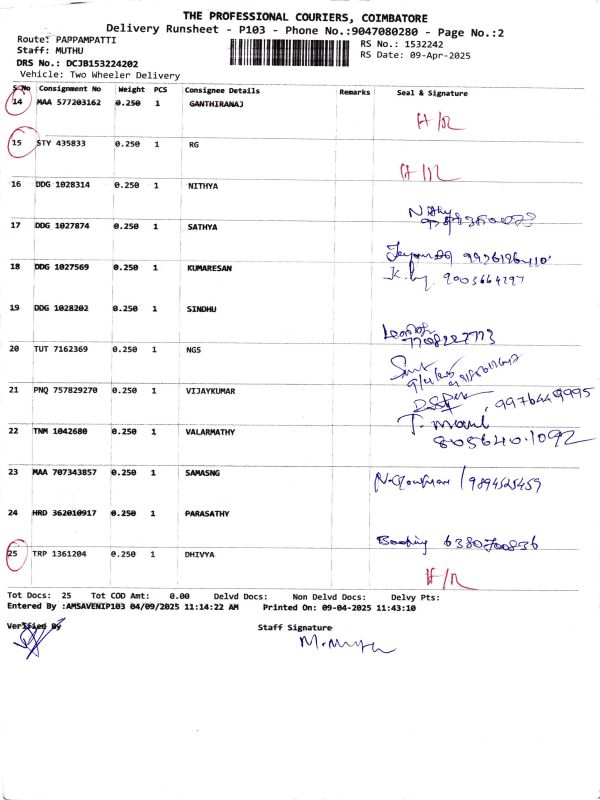 THE PROFESSIONAL COURIERS, COIMBATORE
Delivery Runsheet - P103 - Phone No.:9047080280 - Page No.:2
Route: PAPPAMPATTI
Staff: MUTHU
DRS No.: DCJB153224202
Vehicle: Two Wheeler Delivery
RS No.: 1532242
RS Date: 09-Apr-2025
S.No Consignment No Weight PCS Consignee Details Remarks Seal & Signature
14 MAA 577203162 0.250 1 GANTHIRANAJ
15 STY 435833 0.250 1 RG
16 DDG 1028314 0.250 1 NITHYA
17 DDG 1027874 0.250 1 SATHYA
18 DDG 1027569 0.250 1 KUMARESAN
9003664297
19 DDG 1028202 0.250 1 SINDHU
20 TUT 7162369 0.250 1 NGS
21 PNQ 757829270 0.250 1 VIJAYKUMAR
9976449995
22 TNM 1042680 0.250 1 VALARMATHY
805640.1092
23 MAA 707343857 0.250 1 SAMASNG
9894525459
24 HRD 362010917 0.250 1 PARASATHY
6380700836
25 TRP 1361204 0.250 1 DHIVYA
Tot Docs: 25 Tot COD Amt: 0.00 Delvd Docs: Non Delvd Docs: Delvy Pts:
Entered By :AMSAVENIP103 04/09/2025 11:14:22 AM Printed On: 09-04-2025 11:43:10
Verified By Staff Signature